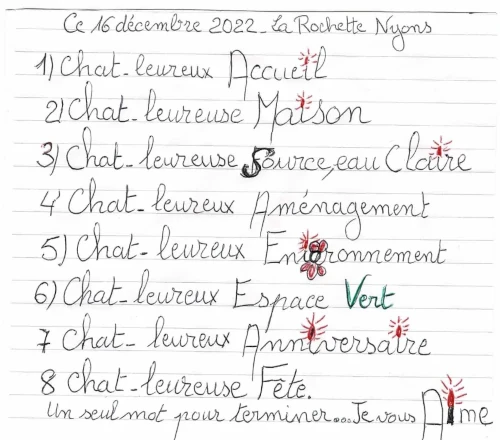 Ce 16 décembre 2022_ La Rochette Nyons
1) Chat_leureux Accueil
2) Chat_leureuse Maison
3) Chat_leureuse Source, eau Claire
4 Chat_leureux Aménagement
5) Chat_leureux Environnement
6) Chat_leureux Espace Vert
7 Chat_leureux Anniversaire
8 Chat_leureuse Fête.
Un seul mot pour terminer... Je vous Aime